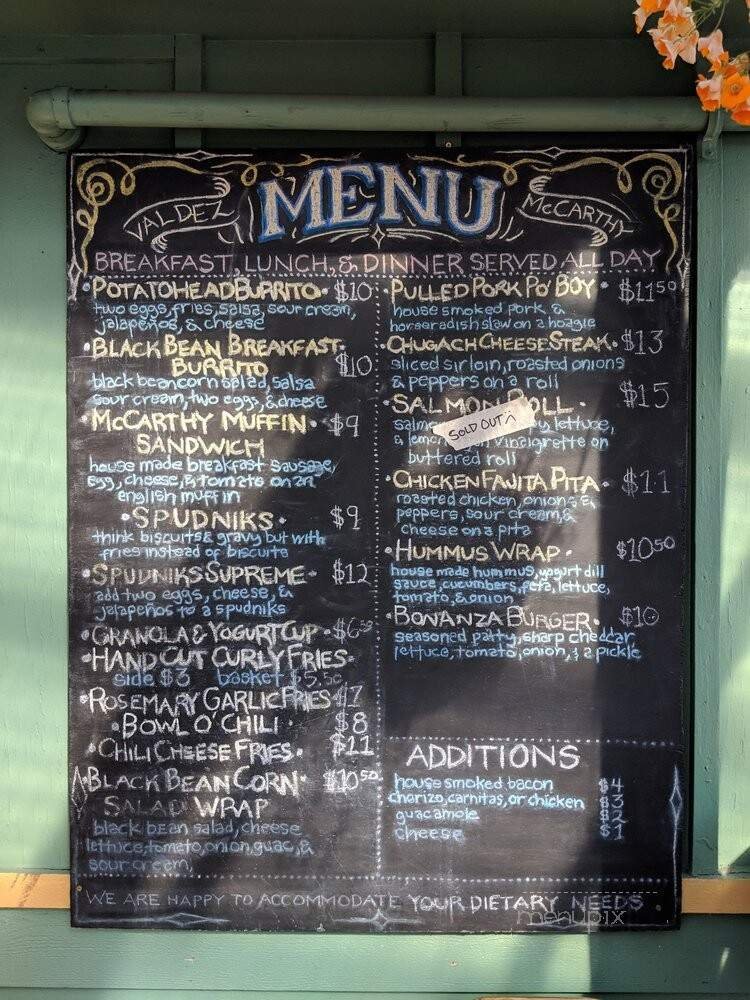 MENU
VALDEZ
McCARTHY
BREAKFAST, LUNCH, & DINNER SERVED ALL DAY
•POTATOHEAD BURRITO• $10
two eggs, fries, salsa, sour cream,
jalapeños, & cheese
•BLACK BEAN BREAKFAST•
BURRITO $10
black bean corn salad, salsa
sour cream, two eggs, & cheese
•McCARTHY MUFFIN• $9
SANDWICH
house made breakfast sausage,
egg, cheese, & tomato on an
english muffin
•SPUDNIKS• $9
think biscuits & gravy but with
fries instead of biscuits
•SPUDNIKS SUPREME• $12
add two eggs, cheese, &
jalapeños to a spudniks
•GRANOLA & YOGURT CUP•
•HAND CUT CURLY FRIES•
side $3 basket $5.50
•ROSEMARY GARLIC FRIES $7
•BOWL O' CHILI• $8
•CHILI CHEESE FRIES• $11
•BLACK BEAN CORN• $10 50
SALAD WRAP
black bean salad, cheese
lettuce, tomato, onion, guac, &
sour cream,
•PULLED PORK PO' BOY• $11 50
house smoked pork &
horseradish slaw on a hoagie
•CHUGACH CHEESE STEAK• $13
sliced sirloin, roasted onions
& peppers on a roll
•SALMON ROLL• $15
SOLD OUT
lettuce,
& lemon vinaigrette on
buttered roll
•CHICKEN FAJITA PITA• $11
roasted chicken, onions &
peppers, sour cream, &
cheese on a pita
•HUMMUS WRAP• $10 50
house made hummus, yogurt dill
sauce, cucumbers, feta, lettuce,
tomato, & onion
•BONANZA BURGER• $10
seasoned patty, sharp cheddar,
lettuce, tomato, onion, & a pickle
ADDITIONS
house smoked bacon $4
chorizo, carnitas, or chicken $3
guacamole $2
cheese $1
WE ARE HAPPY TO ACCOMMODATE YOUR DIETARY NEEDS
menupix